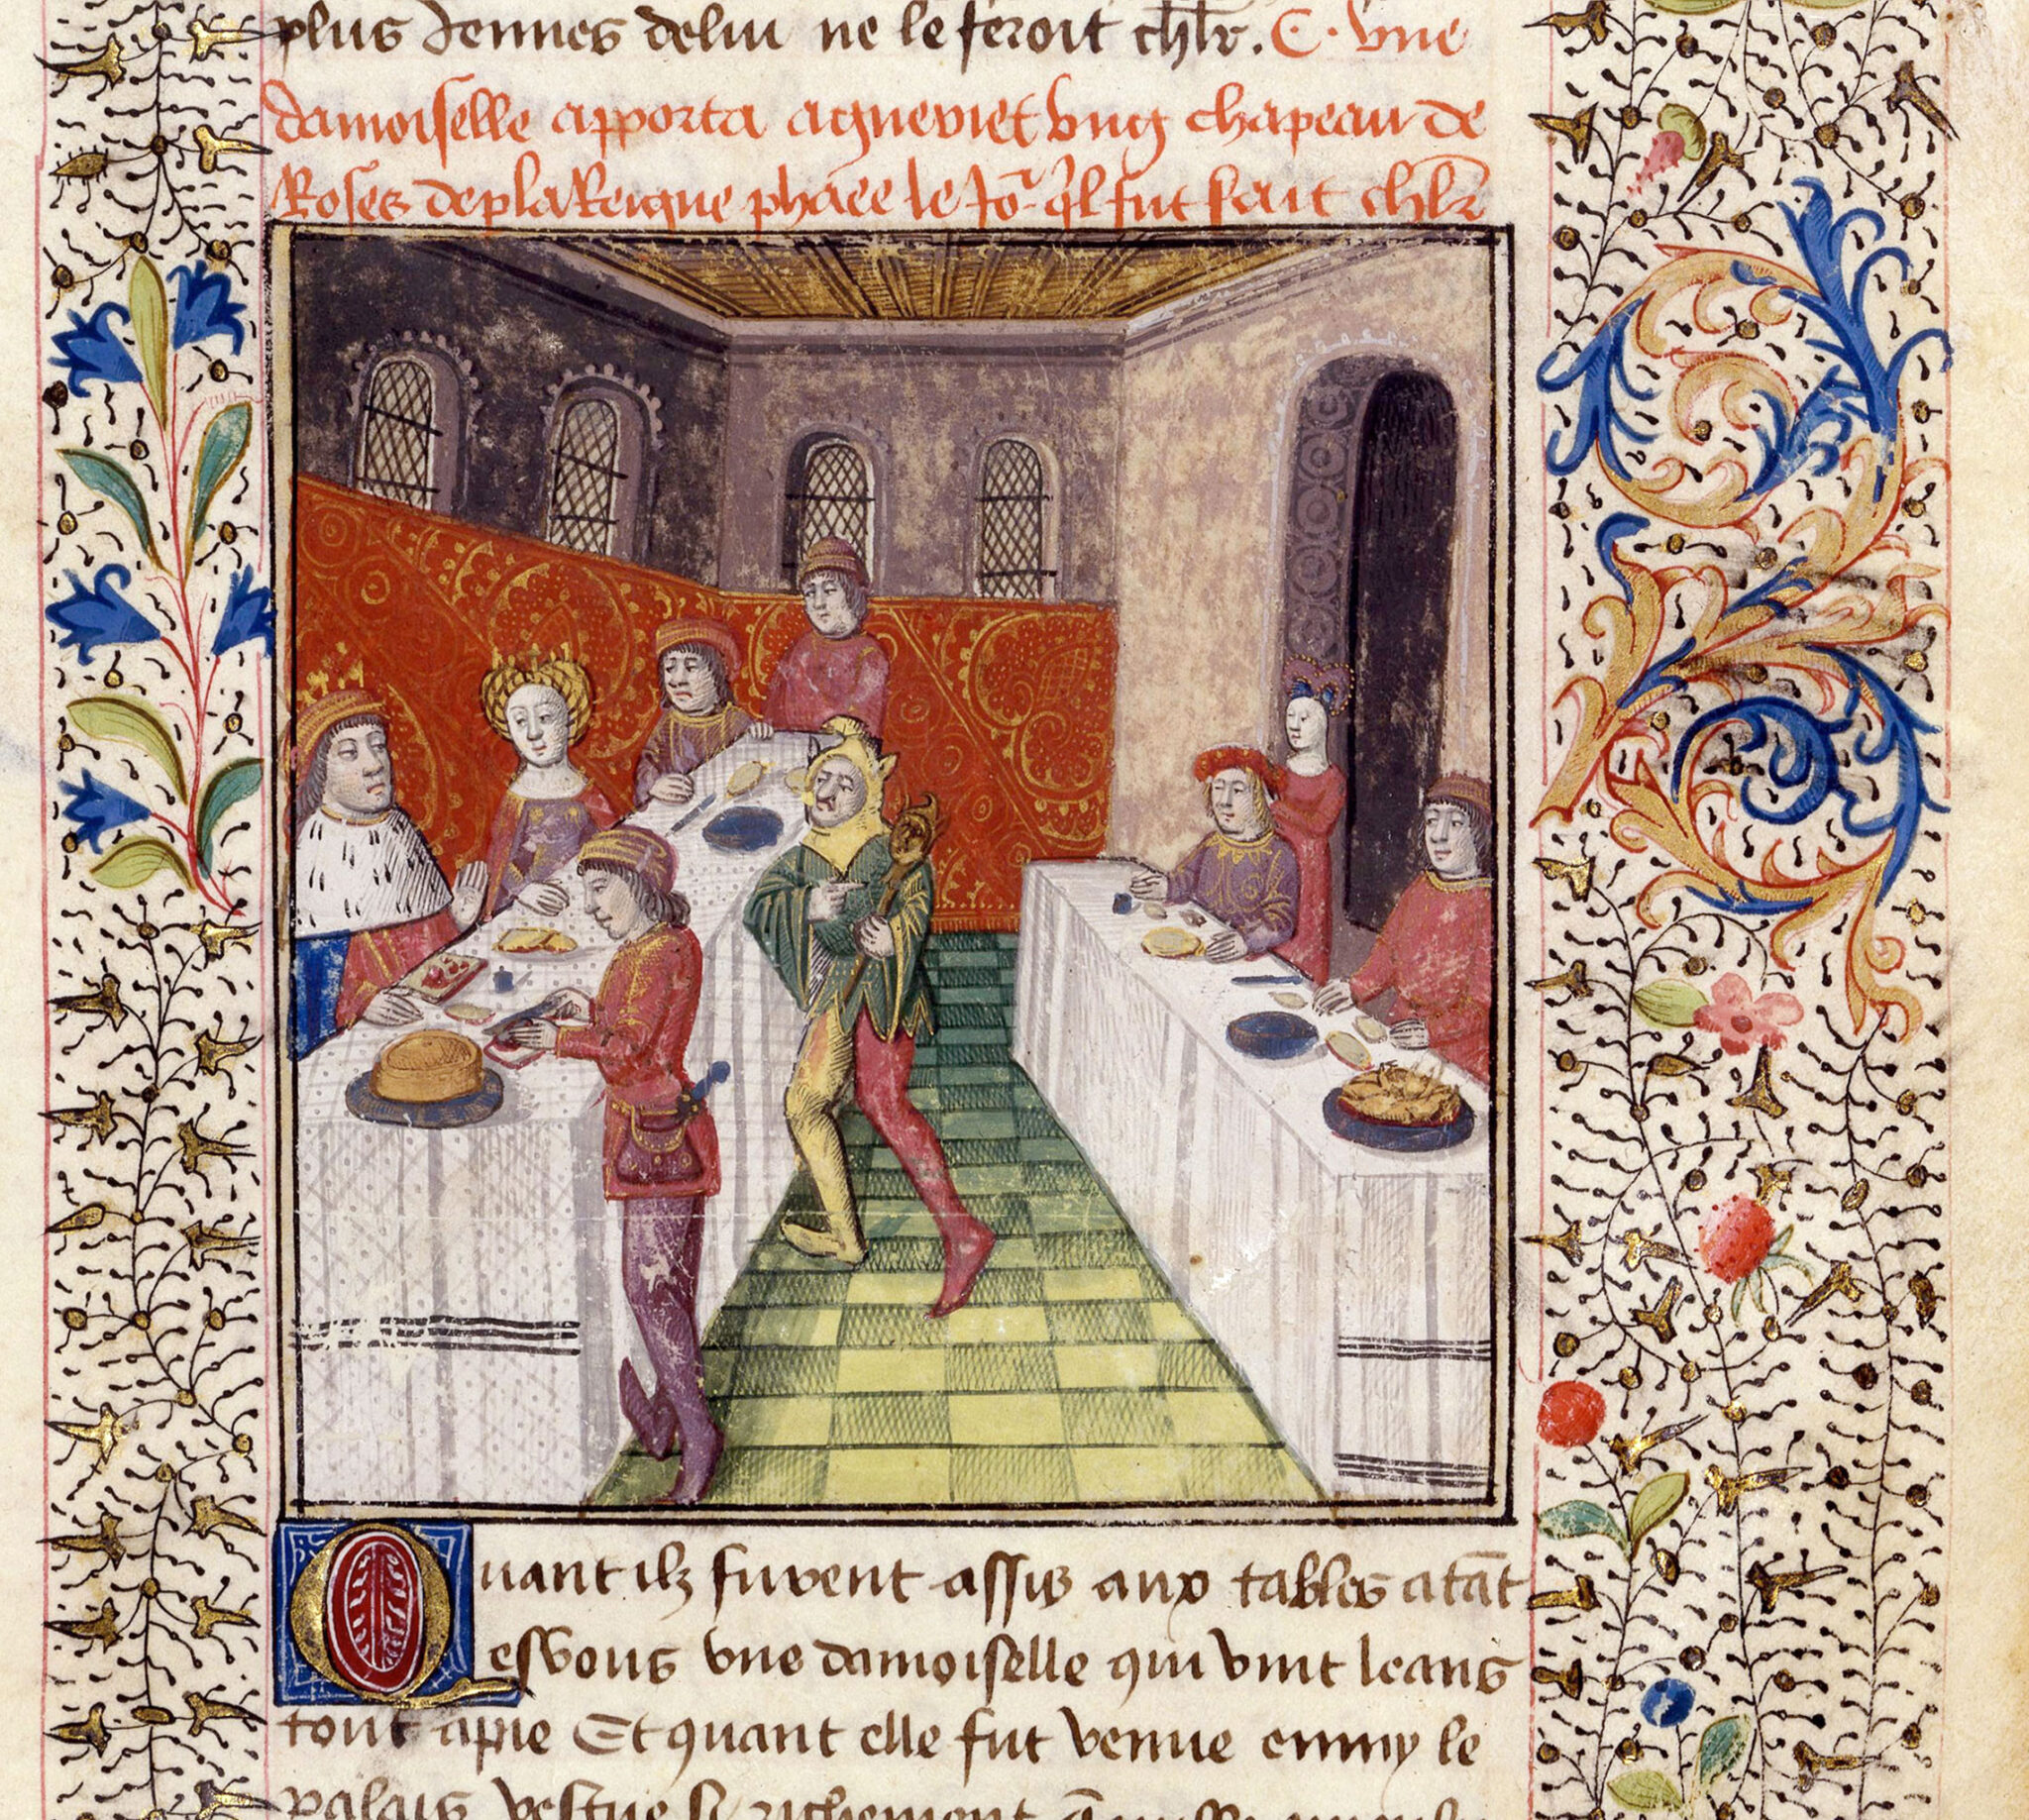 plus Jennes de luy ne le feroit chlr. C. Une
damoiselle apporta agneviet ung chapeau de
Roses de p la Reigne phaee le Jor ql fut fait chlr
Quant ilz furent assis aux tables atāt
esvous une damoiselle qui vint leans
tout apie Et quant elle fut venue enmy le
palais vestue si richement